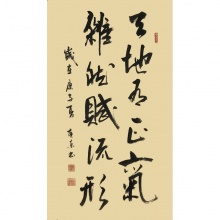 天地有正氣
雜然賦流形
歲在庚子夏